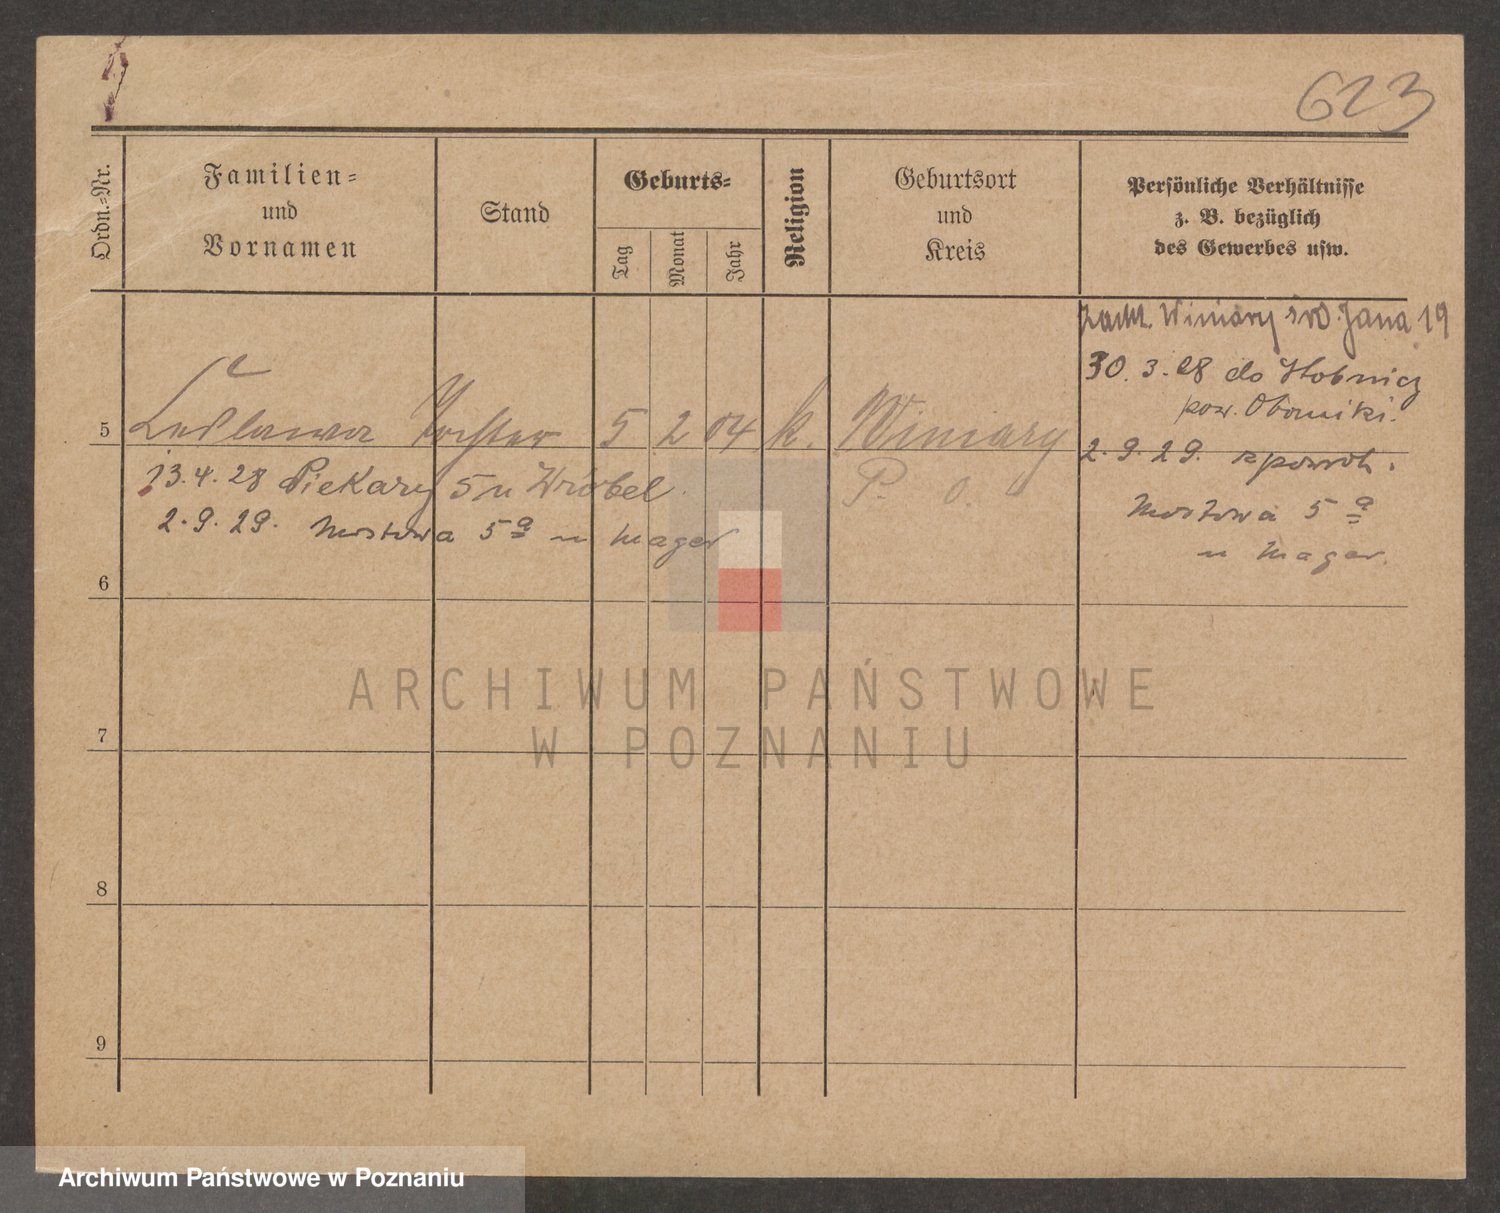 623
Ordn.-Nr.
Familien-
und
Vornamen
Stand
Geburts-
Tag
Monat
Jahr
Religion
Geburtsort
und
Kreis
Persönliche Verhältnisse
z. B. bezüglich
des Gewerbes usw.
Winiary Jana 19
30.3.28 do
pow. Oborniki.
5 5 2 04 k. Winiary
2.9.29. z powrot.
13.4.28 Piekary 5 u Wróbel P. O.
Mostowa 5 a
2.9.29. Mostowa 5 a u Mager
u Mager.
6
ARCHIWUM PAŃSTWOWE
W POZNANIU
7
8
9
Archiwum Państwowe w Poznaniu